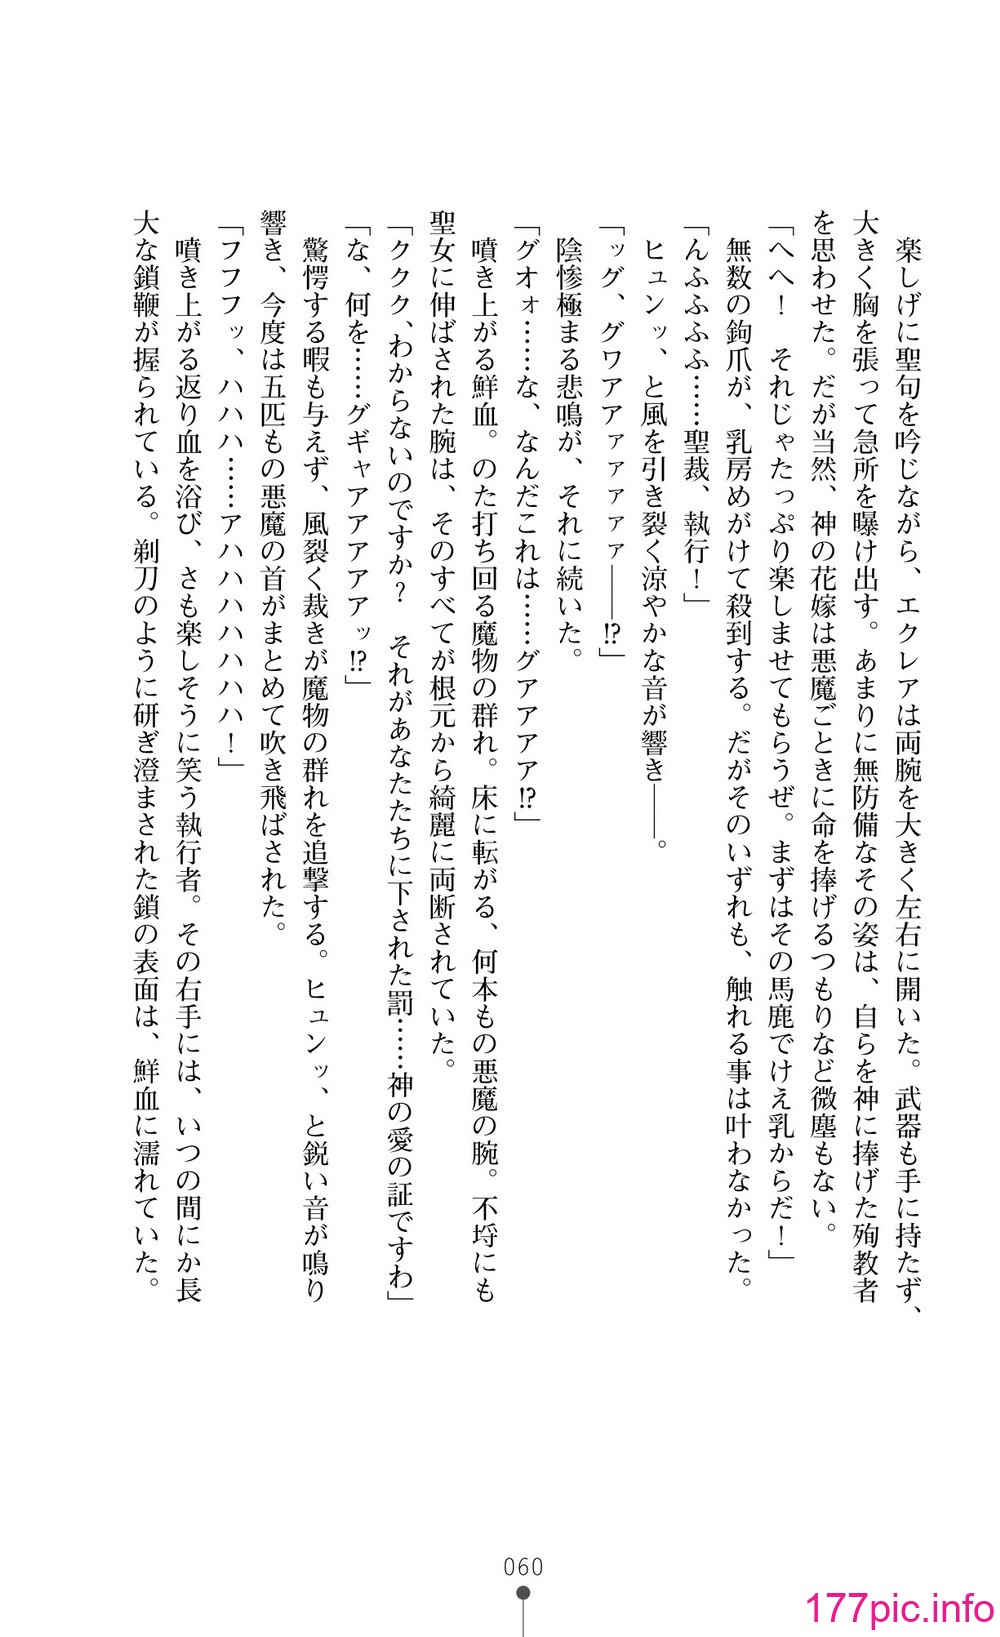 楽しげに聖句を吟じながら、エクレアは両腕を大きく左右に開いた。武器も手に持たず、
大きく胸を張って急所を曝け出す。あまりに無防備なその姿は、自らを神に捧げた殉教者
を思わせた。だが当然、神の花嫁は悪魔ごときに命を捧げるつもりなど微塵もない。
「へへ！　それじゃたっぷり楽しませてもらうぜ。まずはその馬鹿でけえ乳からだ！」
　無数の鉤爪が、乳房めがけて殺到する。だがそのいずれも、触れる事は叶わなかった。
「んふふふふ……聖裁、執行！」
　ヒュンッ、と風を引き裂く涼やかな音が響き――。
「ッグ、グワアアァァァァ――!?」
　陰惨極まる悲鳴が、それに続いた。
「グオォ……な、なんだこれは……グアアアア!?」
　噴き上がる鮮血。のた打ち回る魔物の群れ。床に転がる、何本もの悪魔の腕。不埒にも
聖女に伸ばされた腕は、そのすべてが根元から綺麗に両断されていた。
「ククク、わからないのですか？　それがあなたたちに下された罰……神の愛の証ですわ」
「な、何を……グギャアアアアアッ!?」
　驚愕する暇も与えず、風裂く裁きが魔物の群れを追撃する。ヒュンッ、と鋭い音が鳴り
響き、今度は五匹もの悪魔の首がまとめて吹き飛ばされた。
「フフフッ、ハハハ……アハハハハハハハ！」
　噴き上がる返り血を浴び、さも楽しそうに笑う執行者。その右手には、いつの間にか長
大な鎖鞭が握られている。剃刀のように研ぎ澄まされた鎖の表面は、鮮血に濡れていた。
060
177pic.info